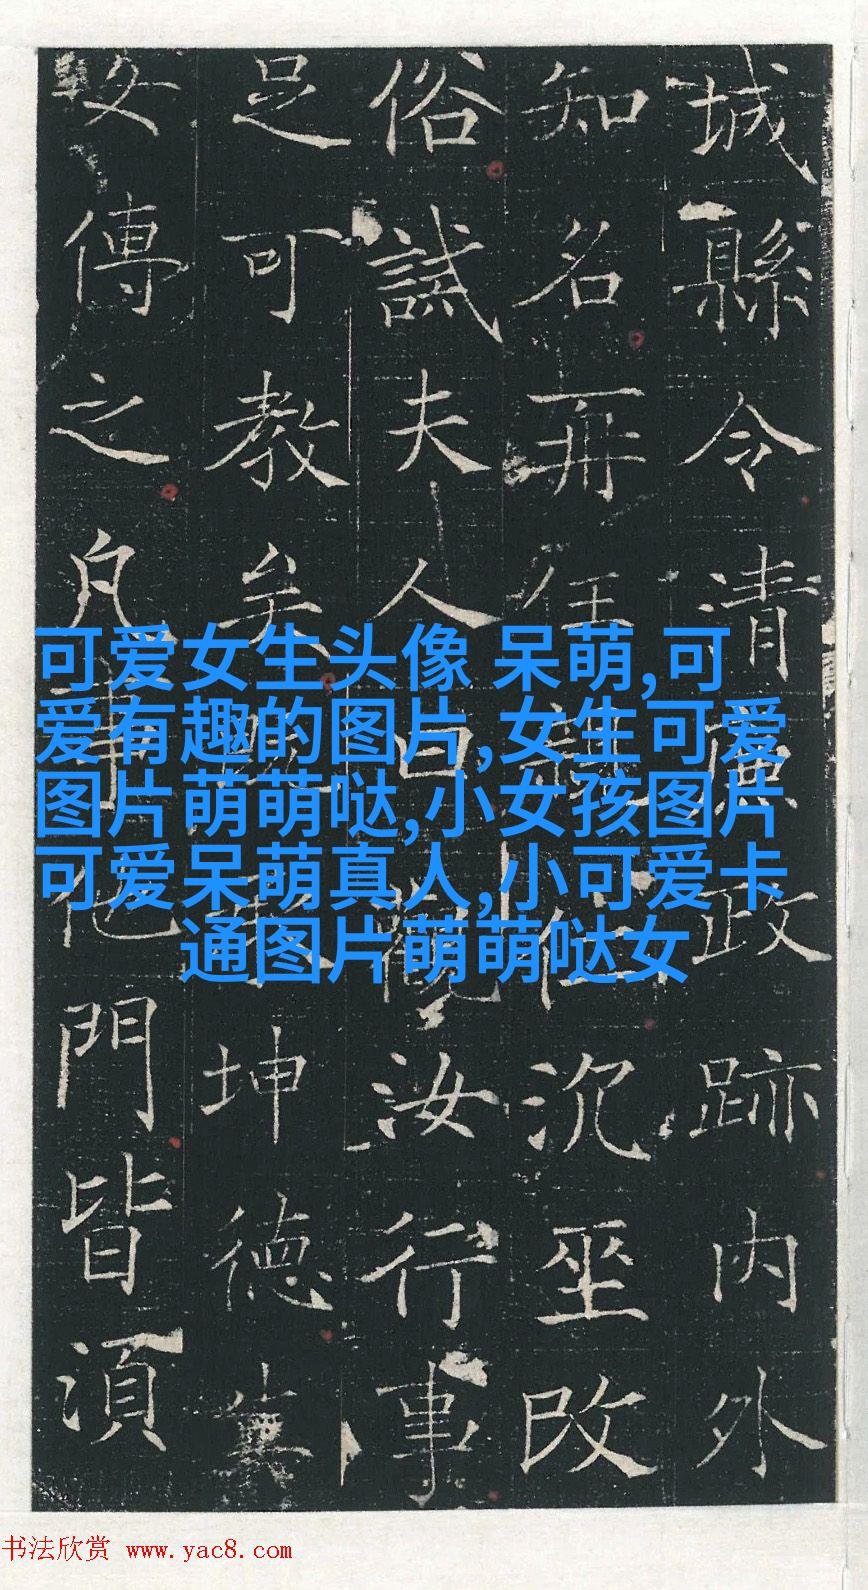 城縣令清廉政跡内外
知名再任沉坐改
俗誡夫人曰汝行事
足可教矣坤德
女傳之凡事他門皆須
可爱女生头像 呆萌,可
爱有趣的图片,女生可爱
图片萌萌哒,小女孩图片
可爱呆萌真人,小可爱卡
通图片萌萌哒女
书法欣赏 www.yac8.com